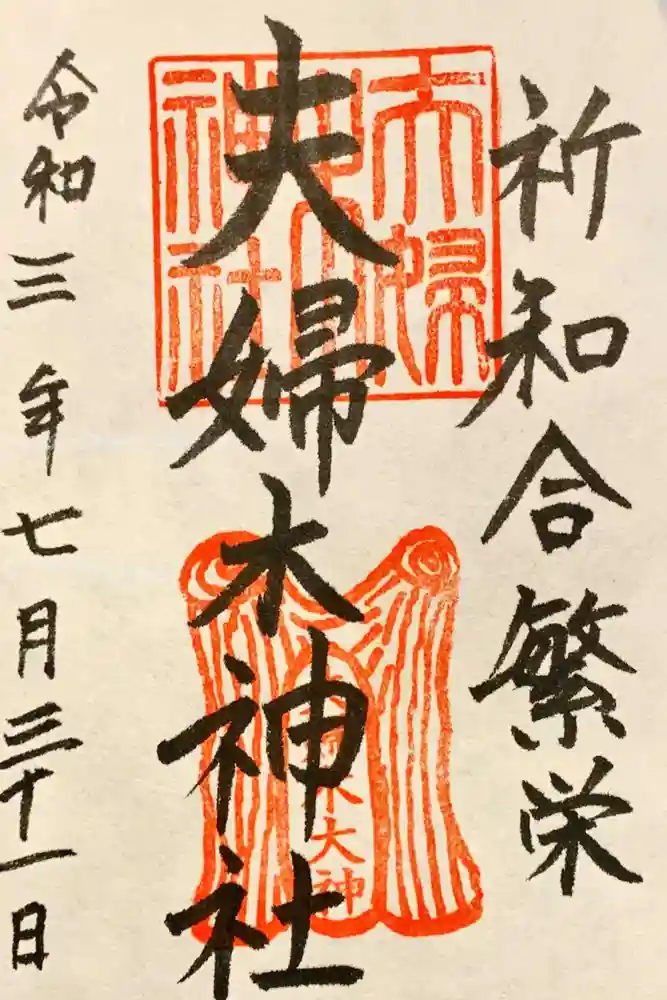 祈和合繁栄
夫婦木神社
夫婦木神社
大神
令和三年七月三十一日